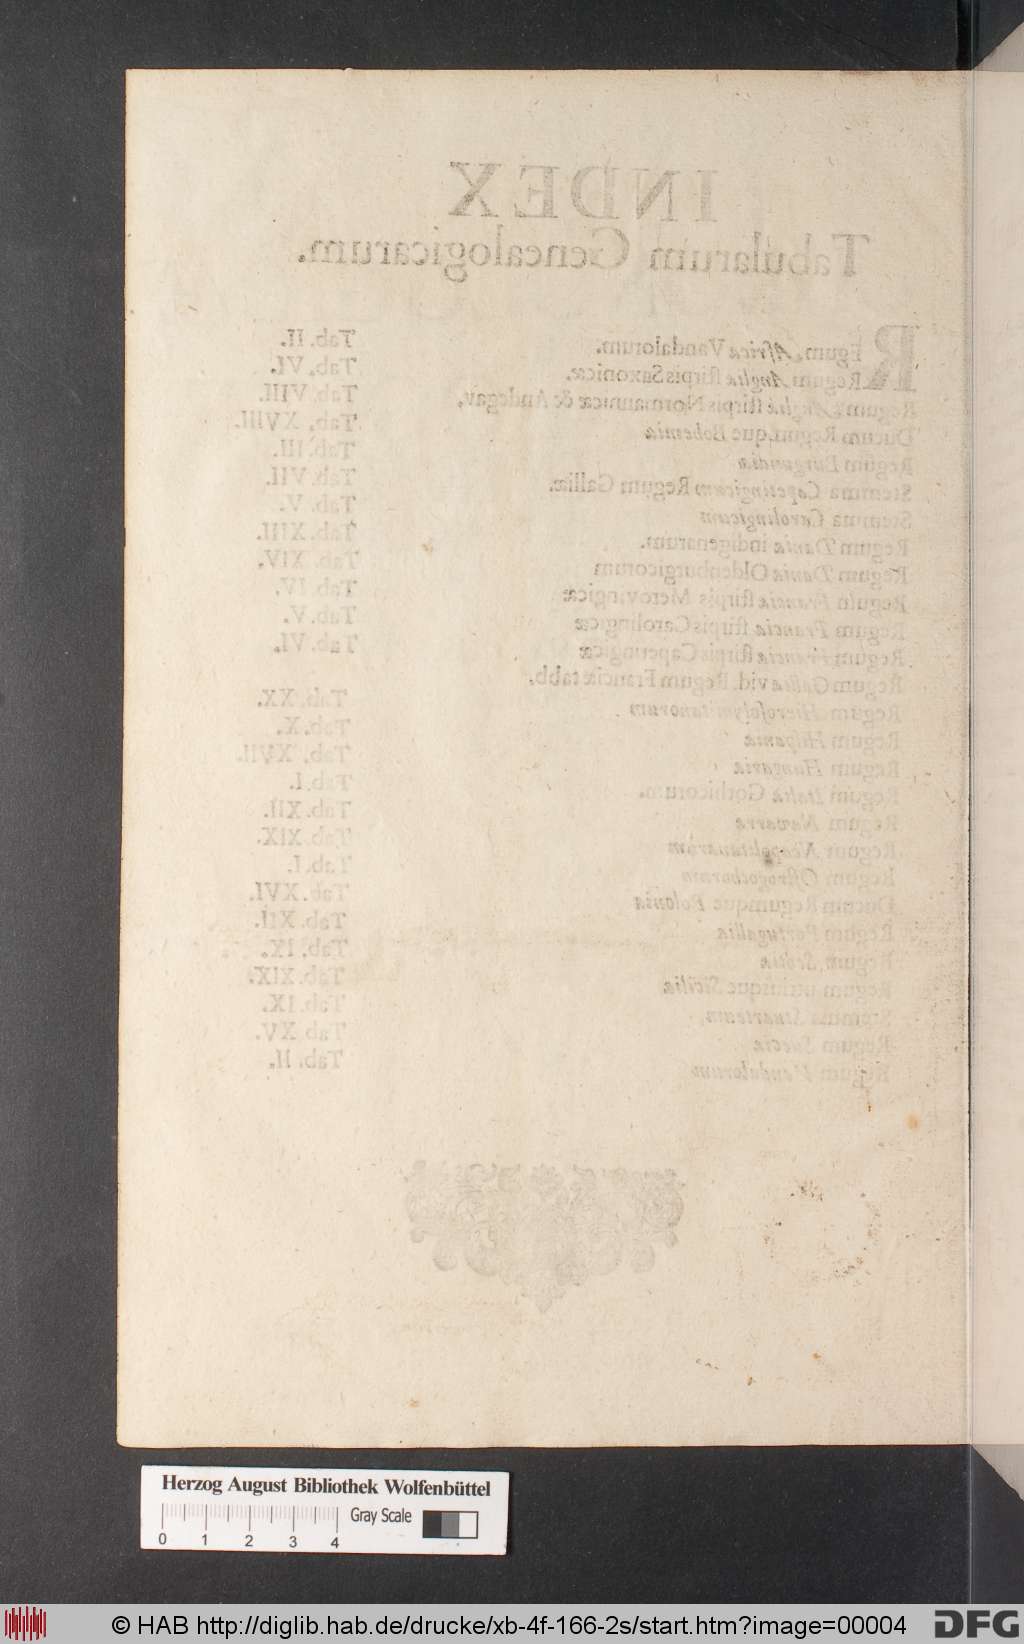 INDEX
Tabularum Genealogicarum.
REgum Africæ Vandalorum. Tab. II.
Regum Angliæ stirpis Saxonicæ. Tab. VI.
Regum Angliæ stirpis Normannicæ & Andegav. Tab. VIII.
Ducum Regumque Bohemiæ Tab. XVIII.
Regum Burgundiæ Tab. III.
Stemma Capetingicum Regum Galliæ. Tab. VII.
Stemma Carolingicum Tab. V.
Regum Daniæ indigenarum. Tab. XIII.
Regum Daniæ Oldenburgicorum Tab. XIV.
Regum Franciæ stirpis Merovingicæ Tab. IV.
Regum Franciæ stirpis Carolingicæ Tab. V.
Regum Franciæ stirpis Capetingicæ Tab. VI.
Regum Galliæ vid. Regum Franciæ tabb.
Regum Hierosolymitanorum Tab. XX.
Regum Hispaniæ Tab. X.
Regum Hungariæ Tab. XVII.
Regum Italiæ Gothicorum. Tab. I.
Regum Navarræ Tab. XII.
Regum Neapolitanorum Tab. XIX.
Regum Ostrogothorum Tab. I.
Ducum Regumque Poloniæ Tab. XVI.
Regum Portugalliæ Tab. XII.
Regum Scotiæ Tab. IX.
Regum utriusque Siciliæ Tab. XIX.
Stemma Stuarteum. Tab. IX.
Regum Sueciæ Tab. XV.
Regum Vandalorum Tab. II.
Herzog August Bibliothek Wolfenbüttel
Gray Scale
0 1 2 3 4
© HAB http://diglib.hab.de/drucke/xb-4f-166-2s/start.htm?image=00004
DFG